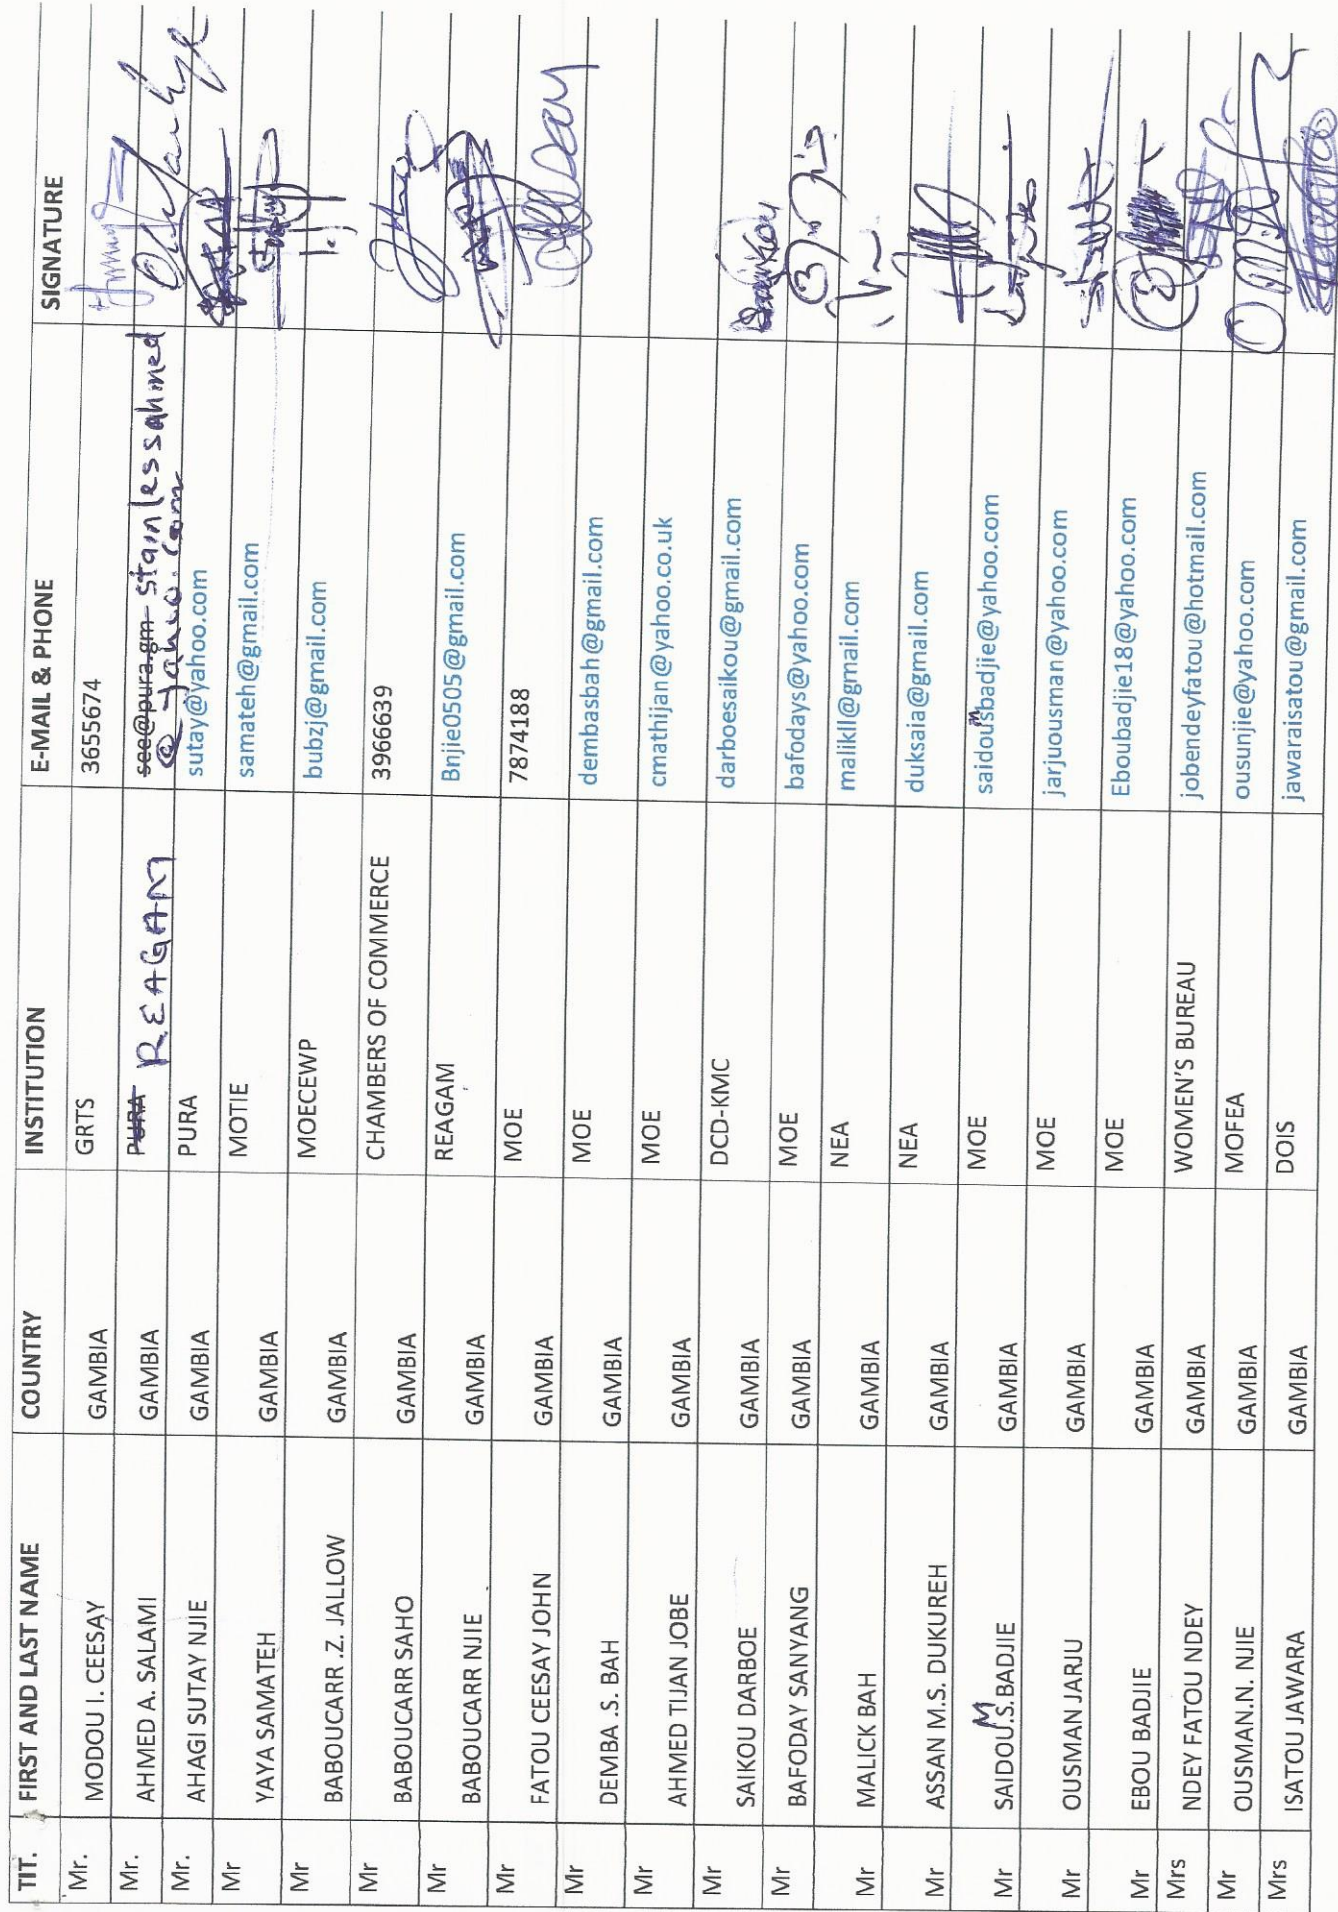 TIT. FIRST AND LAST NAME COUNTRY INSTITUTION E-MAIL & PHONE SIGNATURE
Mr. MODOU I. CEESAY GAMBIA GRTS 3655674
Mr. AHMED A. SALAMI GAMBIA PURA REAGAM see@pura.gm stainlessahmed
@yahoo.com
Mr. AHAGI SUTAY NJIE GAMBIA PURA sutay@yahoo.com
Mr YAYA SAMATEH GAMBIA MOTIE samateh@gmail.com
Mr BABOUCARR .Z. JALLOW GAMBIA MOECEWP bubzj@gmail.com
Mr BABOUCARR SAHO GAMBIA CHAMBERS OF COMMERCE 3966639
Mr BABOUCARR NJIE GAMBIA REAGAM Bnjie0505@gmail.com
Mr FATOU CEESAY JOHN GAMBIA MOE 7874188
Mr DEMBA .S. BAH GAMBIA MOE dembasbah@gmail.com
Mr AHMED TIJAN JOBE GAMBIA MOE cmathijan@yahoo.co.uk
Mr SAIKOU DARBOE GAMBIA DCD-KMC darboesaikou@gmail.com
Mr BAFODAY SANYANG GAMBIA MOE bafodays@yahoo.com
Mr MALICK BAH GAMBIA NEA malikll@gmail.com
Mr ASSAN M.S. DUKUREH GAMBIA NEA duksaia@gmail.com
Mr SAIDOU M.S. BADJIE GAMBIA MOE saidoumsbadjie@yahoo.com
Mr OUSMAN JARJU GAMBIA MOE jarjuousman@yahoo.com
Mr EBOU BADJIE GAMBIA MOE Eboubadjie18@yahoo.com
Mrs NDEY FATOU NDEY GAMBIA WOMEN'S BUREAU jobendeyfatou@hotmail.com
Mr OUSMAN.N. NJIE GAMBIA MOFEA ousunjie@yahoo.com
Mrs ISATOU JAWARA GAMBIA DOIS jawaraisatou@gmail.com